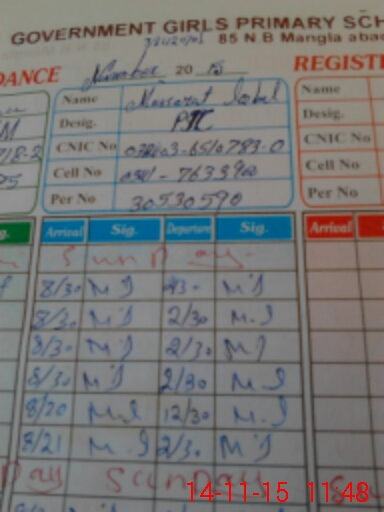 GOVERNMENT GIRLS PRIMARY SCH
85 N.B Mangla aba
DANCE November 20 15 REGISTE
Name Mussarat Iqbal Name
M Desig. PTC Desig.
718-2 CNIC No CNIC No
75 Cell No Cell No
Per No 30530590 Per No
g. Arrival Sig. Departure Sig. Arrival S
Sunday
8/30 M.I M.I
8/30 M.I 2/30 M.I
8/30 M.I 2/30 M.I
8/30 M.I 2/30 M.I
8/20 M.I 12/30 M.I
8/21 M.I 2/30 M.I
Day Sunday Su
14-11-15 11:48